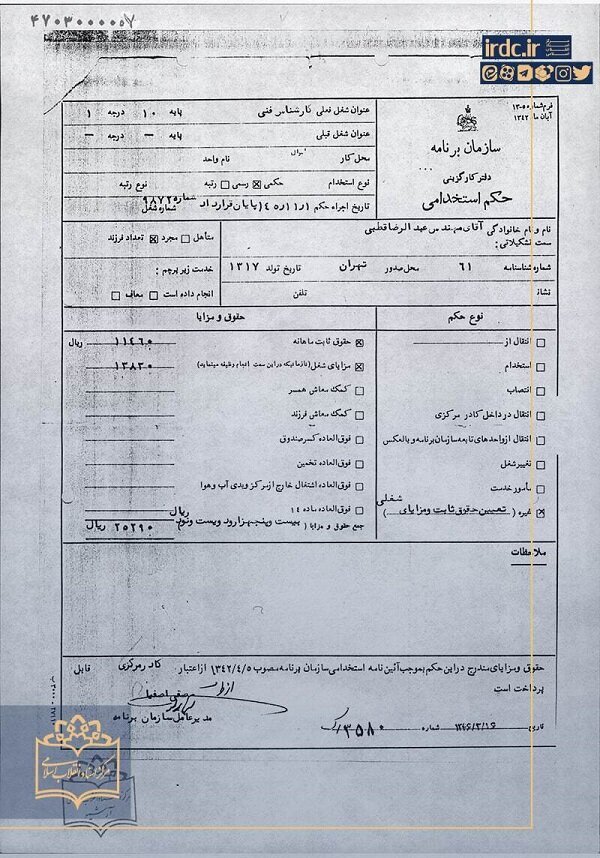 ۴۷۰۳۰۰۰۰۰۰۷
irdc.ir
فرم شماره ۵-۱۳
آبان ماه ۱۳۴۲
سازمان برنامه
دفتر کارگزینی
حکم استخدامی
عنوان شغل فعلی کارشناس فنی پایه ۱۰ درجه ۱
عنوان شغل قبلی پایه — درجه —
محل کار نام واحد
نوع استخدام حکمی رسمی رتبه نوع رتبه
تاریخ اجراء حکم ۴۵/۱/۱ (پایان قرارداد شماره ۹۸۷۲ شماره شغل
نام و نام خانوادگی آقای مهندس عبدالرضا قطبی
سمت تشکیلاتی:
شماره شناسنامه ۶۱ محل صدور تهران تاریخ تولد ۱۳۱۷
نشانی تلفن
متأهل مجرد تعداد فرزند
خدمت زیر پرچم:
انجام داده است معاف
نوع حکم
انتقال از
استخدام
انتصاب
انتقال در داخل کادر مرکزی
انتقال از واحدهای تابعه سازمان برنامه و بالعکس
تغییر شغل
مأمور خدمت
غیره (تعیین حقوق ثابت و مزایای شغلی)
حقوق و مزایا
حقوق ثابت ماهانه ۱۱۴۶۰ ریال
مزایای شغل (تا زمانیکه در این سمت انجام وظیفه مینماید) ۱۳۸۳۰
کمک معاش همسر
کمک معاش فرزند
فوق العاده کسر صندوق
فوق العاده تخمین
فوق العاده اشتغال خارج از مرکز و بدی آب و هوا
فوق العاده ماده ۱۴
جمع حقوق و مزایا (بیست و پنجهزار و دویست و نود ریال ۲۵۲۹۰ ریال
ملاحظات
حقوق و مزایای مندرج در این حکم بموجب آئین نامه استخدامی سازمان برنامه مصوب ۱۳۴۲/۴/۵ از اعتبار کادر مرکزی قابل
پرداخت است
از طرف صفی اصفیا
مدیر عامل سازمان برنامه
تاریخ ۱۳۴۶/۳/۱۶ شماره ۳۵۸۰/ک
مرکز اسناد انقلاب اسلامی